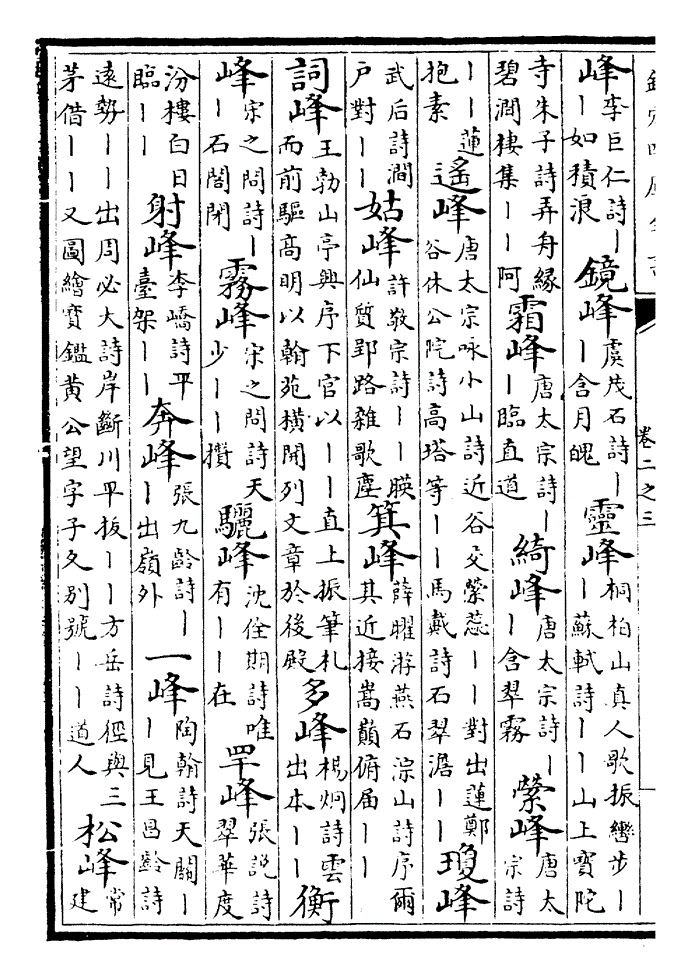 欽定四庫全書
卷二之三
峰李巨仁詩丨丨如積浪 鏡峰虞茂石詩丨丨含月魄 靈峰桐柏山真人歌振轡步丨丨蘇軾詩丨丨山上寶陀
寺朱子詩弄舟緣碧澗棲集丨丨阿 霜峰唐太宗詩丨丨臨直道 綺峰唐太宗詩丨丨含翠霧 縈峰唐太宗詩
丨丨蓮抱素 遙峰唐太宗咏小山詩近谷交縈蕊丨丨對出蓮鄭谷休公院詩高塔等丨丨馬戴詩石翠澹丨丨 瓊峰
武后詩澗戶對丨丨 姑峰許敬宗詩丨丨睽仙質郢路雜歌塵 箕峰薛曜游燕石淙山詩序爾其近接嵩巔俯届丨丨
詞峰王勃山亭興序下官以丨丨直上振筆札而前驅高明以翰苑橫開列文章於後殿 多峰楊炯詩雲出本丨丨 衡
峰宋之問詩丨丨石閤閉 霧峰宋之問詩天少丨丨攢 驪峰沈佺期詩唯有丨丨在 罕峰張說詩翠華度
汾樓白日臨丨丨 射峰李嶠詩平臺架丨丨 奔峰張九齡詩丨丨出嶺外 一峰陶翰詩天闢丨丨見王昌齡詩
遠勢丨丨出周必大詩岸斷川平扳丨丨方岳詩徑與三茅借丨丨又圖繪寶鑑黄公望字子久别號丨丨道人 松峰常建